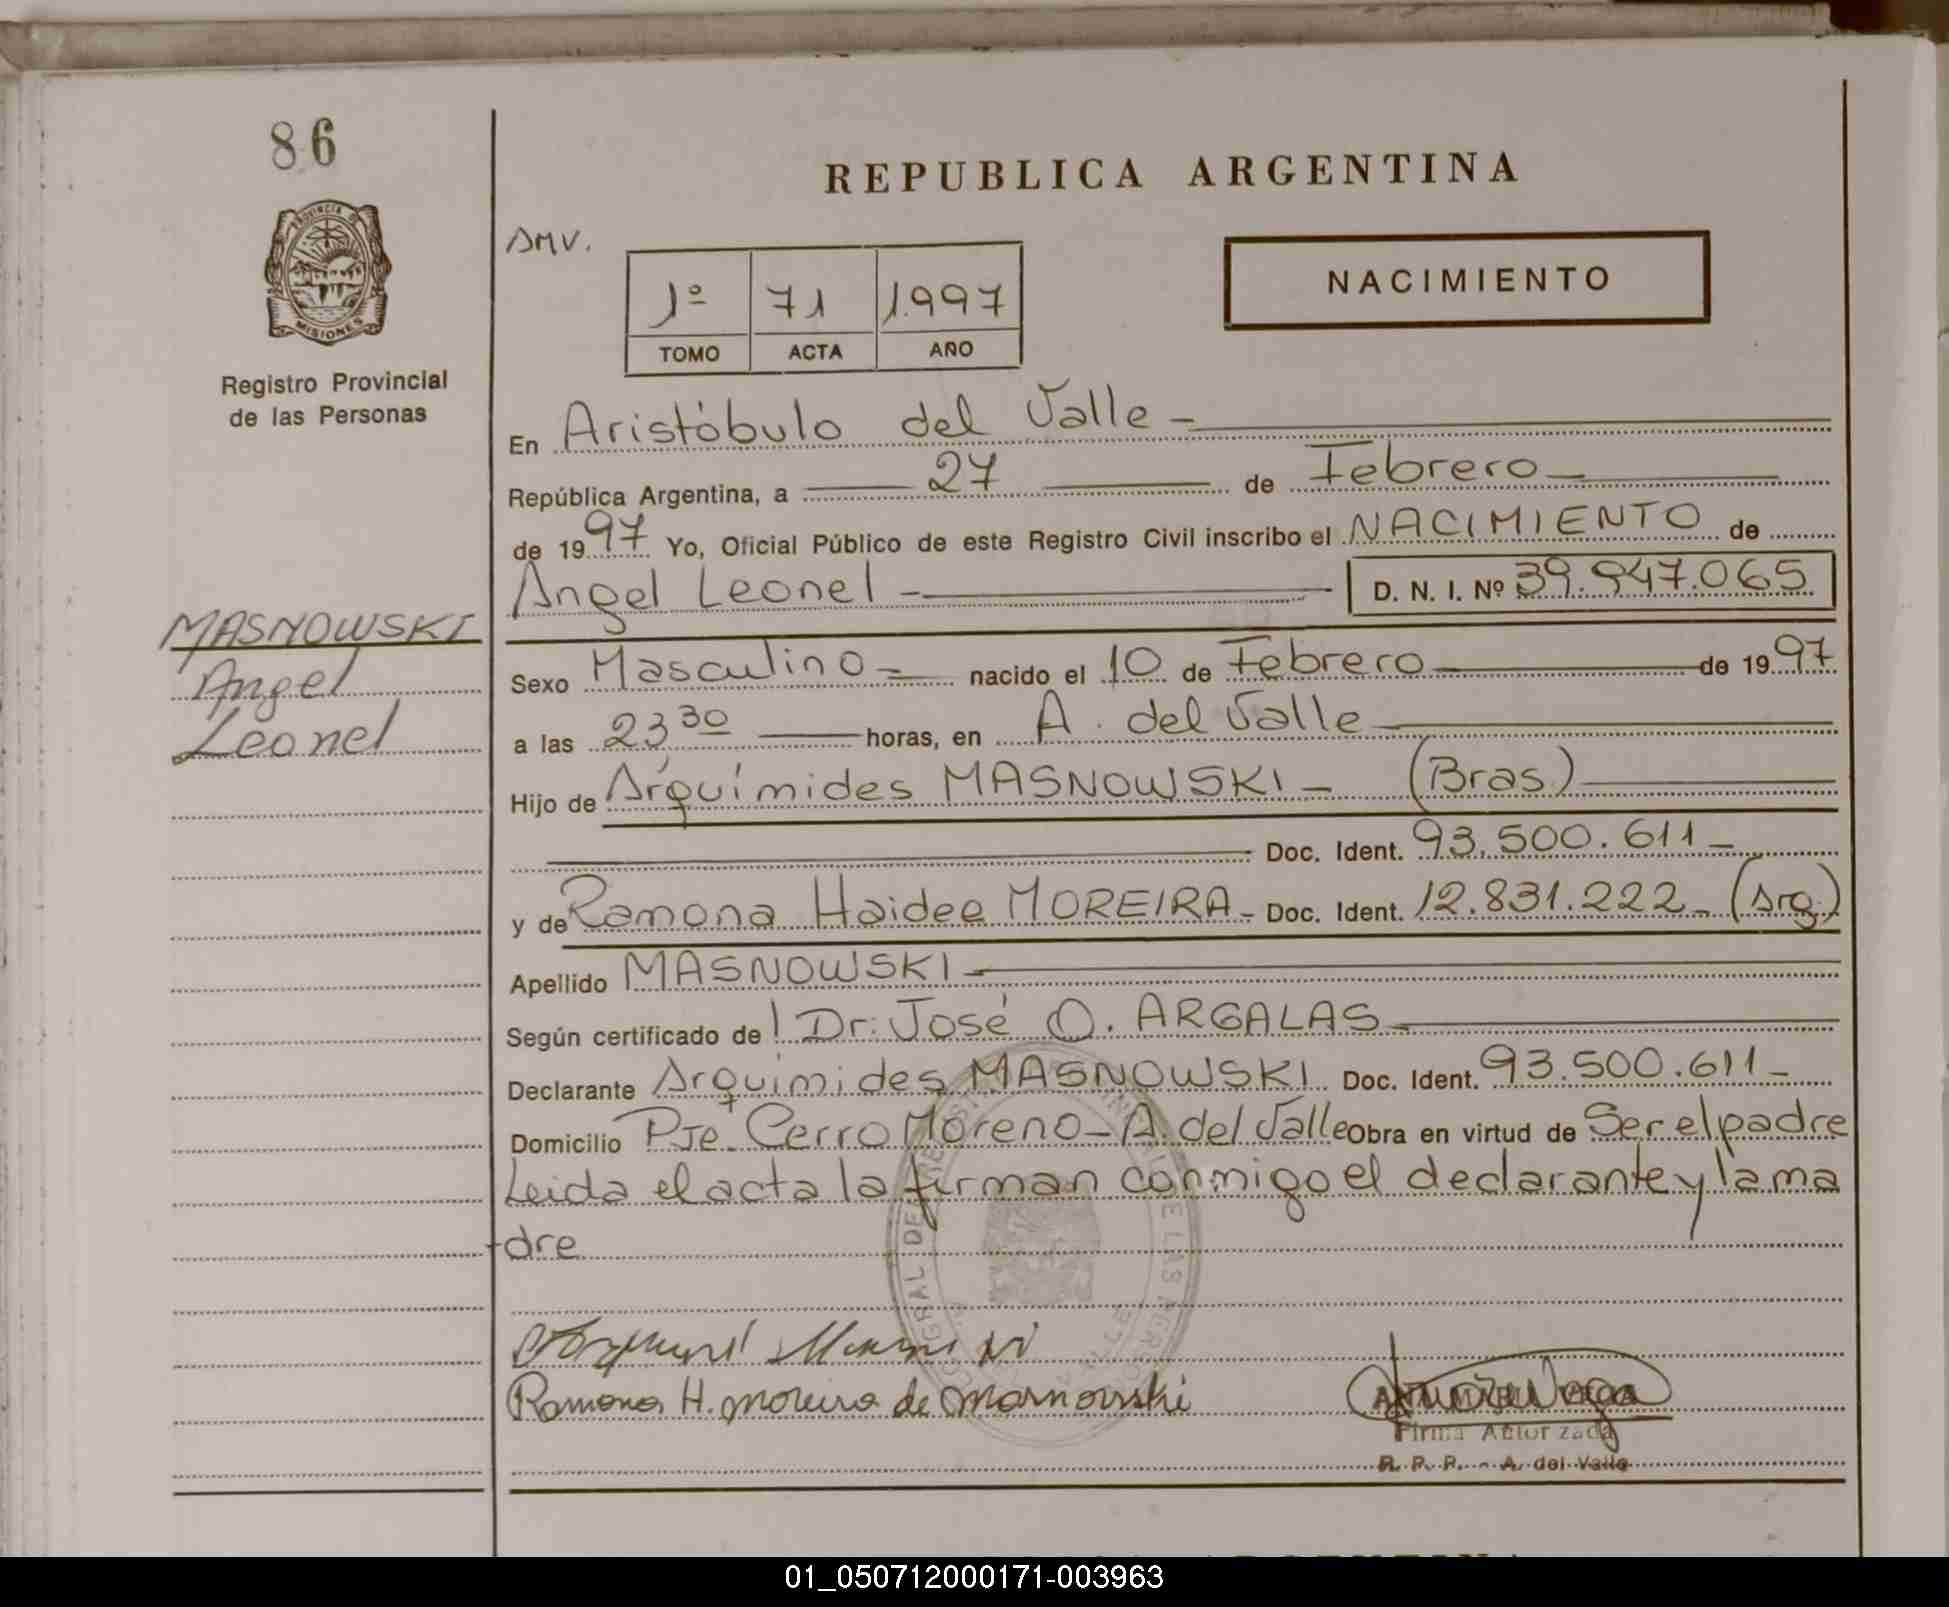 86
PROVINCIA DE
MISIONES
Registro Provincial
de las Personas
MASNOWSKI
Angel
Leonel
REPUBLICA ARGENTINA
AMV.
1º 71 1.997
TOMO ACTA AÑO
NACIMIENTO
En Aristóbulo del Valle -
República Argentina, a 27 de Febrero
de 1997 Yo, Oficial Público de este Registro Civil inscribo el NACIMIENTO de
Angel Leonel - D. N. I. Nº 39.947.065
Sexo Masculino nacido el 10 de Febrero de 1997
a las 23 30 horas, en A. del Valle
Hijo de Arquímides MASNOWSKI - (Bras.)
Doc. Ident. 93.500.611 -
y de Ramona Haidee MOREIRA - Doc. Ident. 12.831.222 - (Arg.)
Apellido MASNOWSKI
Según certificado de Dr. José O. ARGALAS
Declarante Arquímides MASNOWSKI Doc. Ident. 93.500.611 -
Domicilio Pje. Cerro Moreno - A. del Valle Obra en virtud de Ser el padre
Leida el acta la firman conmigo el declarante y la ma
dre
Ramona H. Moreira de Masnowski
Firma Autorizada
R. P. P. - A. del Valle
01_050712000171-003963